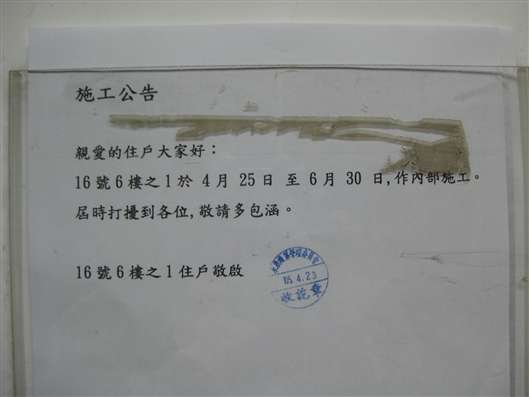 施工公告
親愛的住戶大家好：
16號6樓之1於4月25日 至6月30日,作內部施工。
屆時打擾到各位,敬請多包涵。
16號6樓之1住戶敬啟
4.23
收訖章